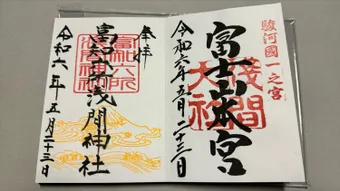 駿河國一之宮
富士山本宮
浅間大社
令和六年五月二十三日
奉拝
冨知六所浅間神社
令和六年五月二十三日